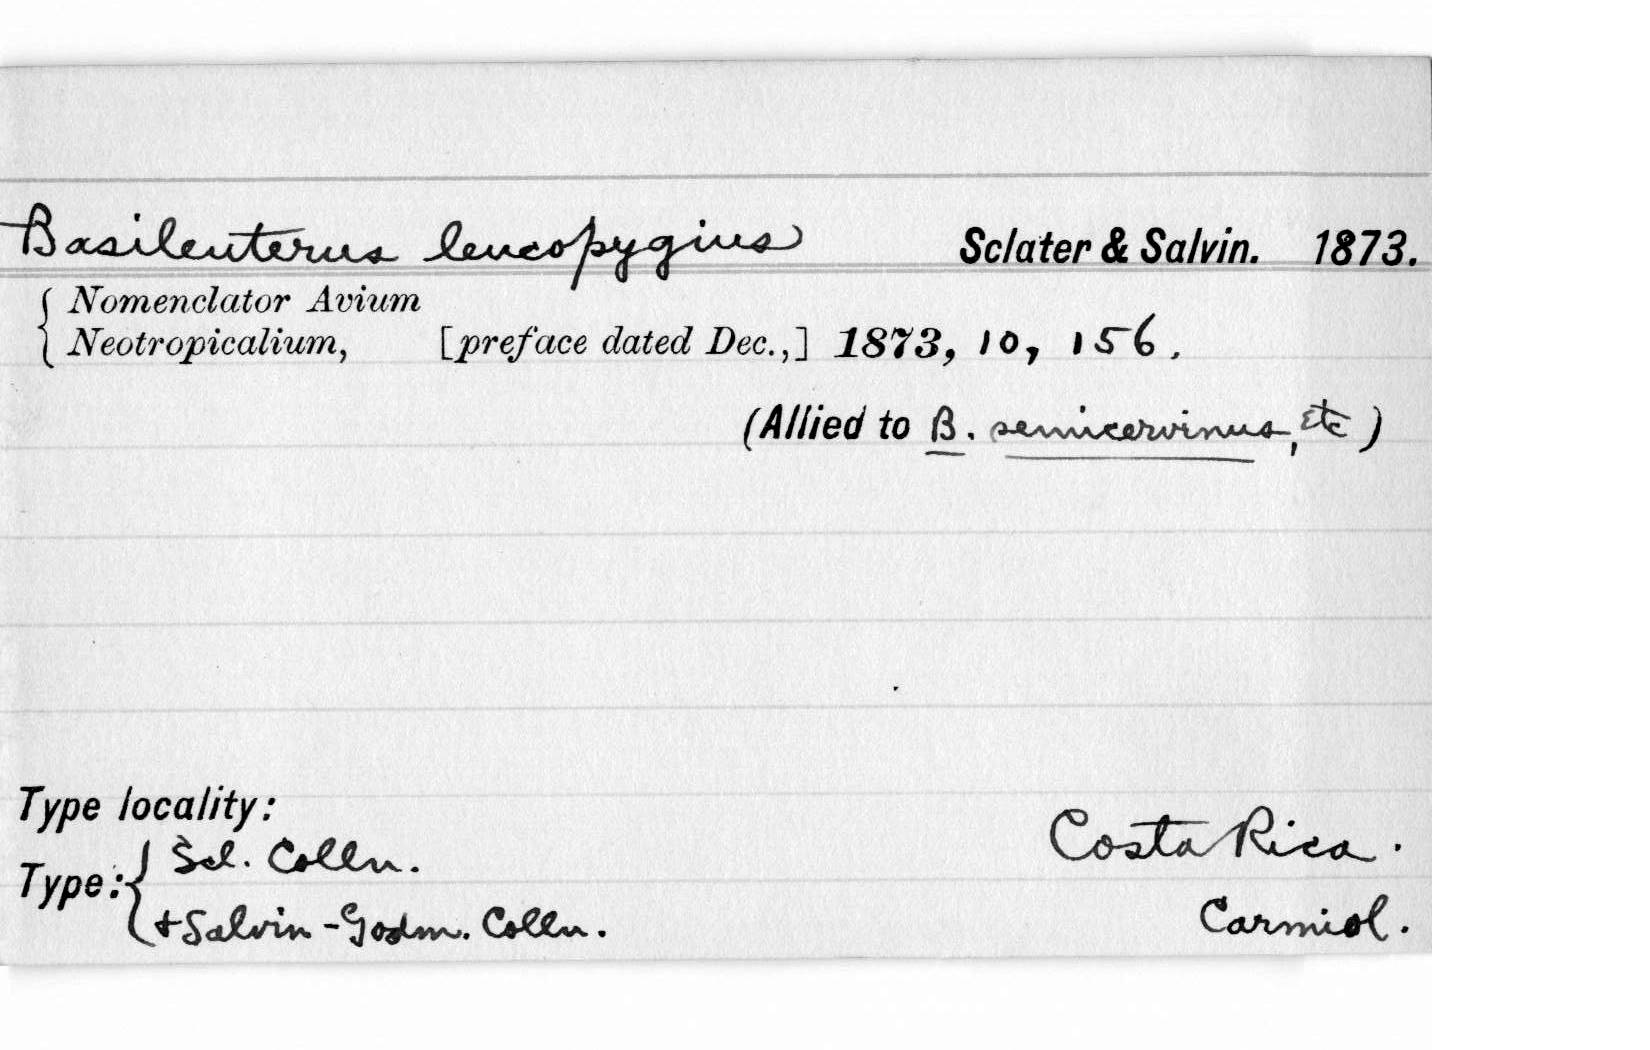 Basileuterus leucopygius Sclater & Salvin. 1873.
Nomenclator Avium
Neotropicalium, [preface dated Dec.,] 1873, 10, 156.
(Allied to B. semicervinus, etc)
Type locality:
Costa Rica.
Type: { Scl. Colln.
+ Salvin-Godm. Colln.
Carmiol.